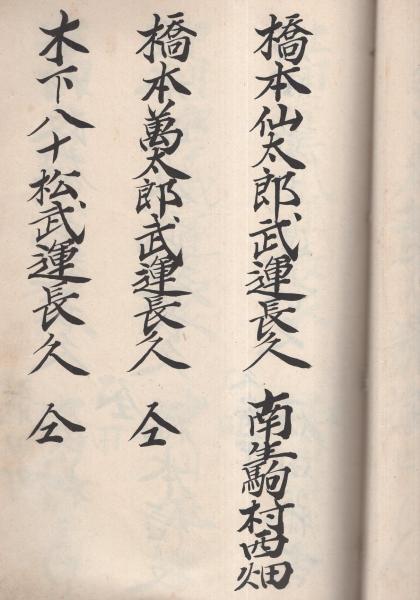 橋本仙太郎武運長久 南生駒村西畑
橋本萬太郎武運長久 仝
木下八十松武運長久 仝